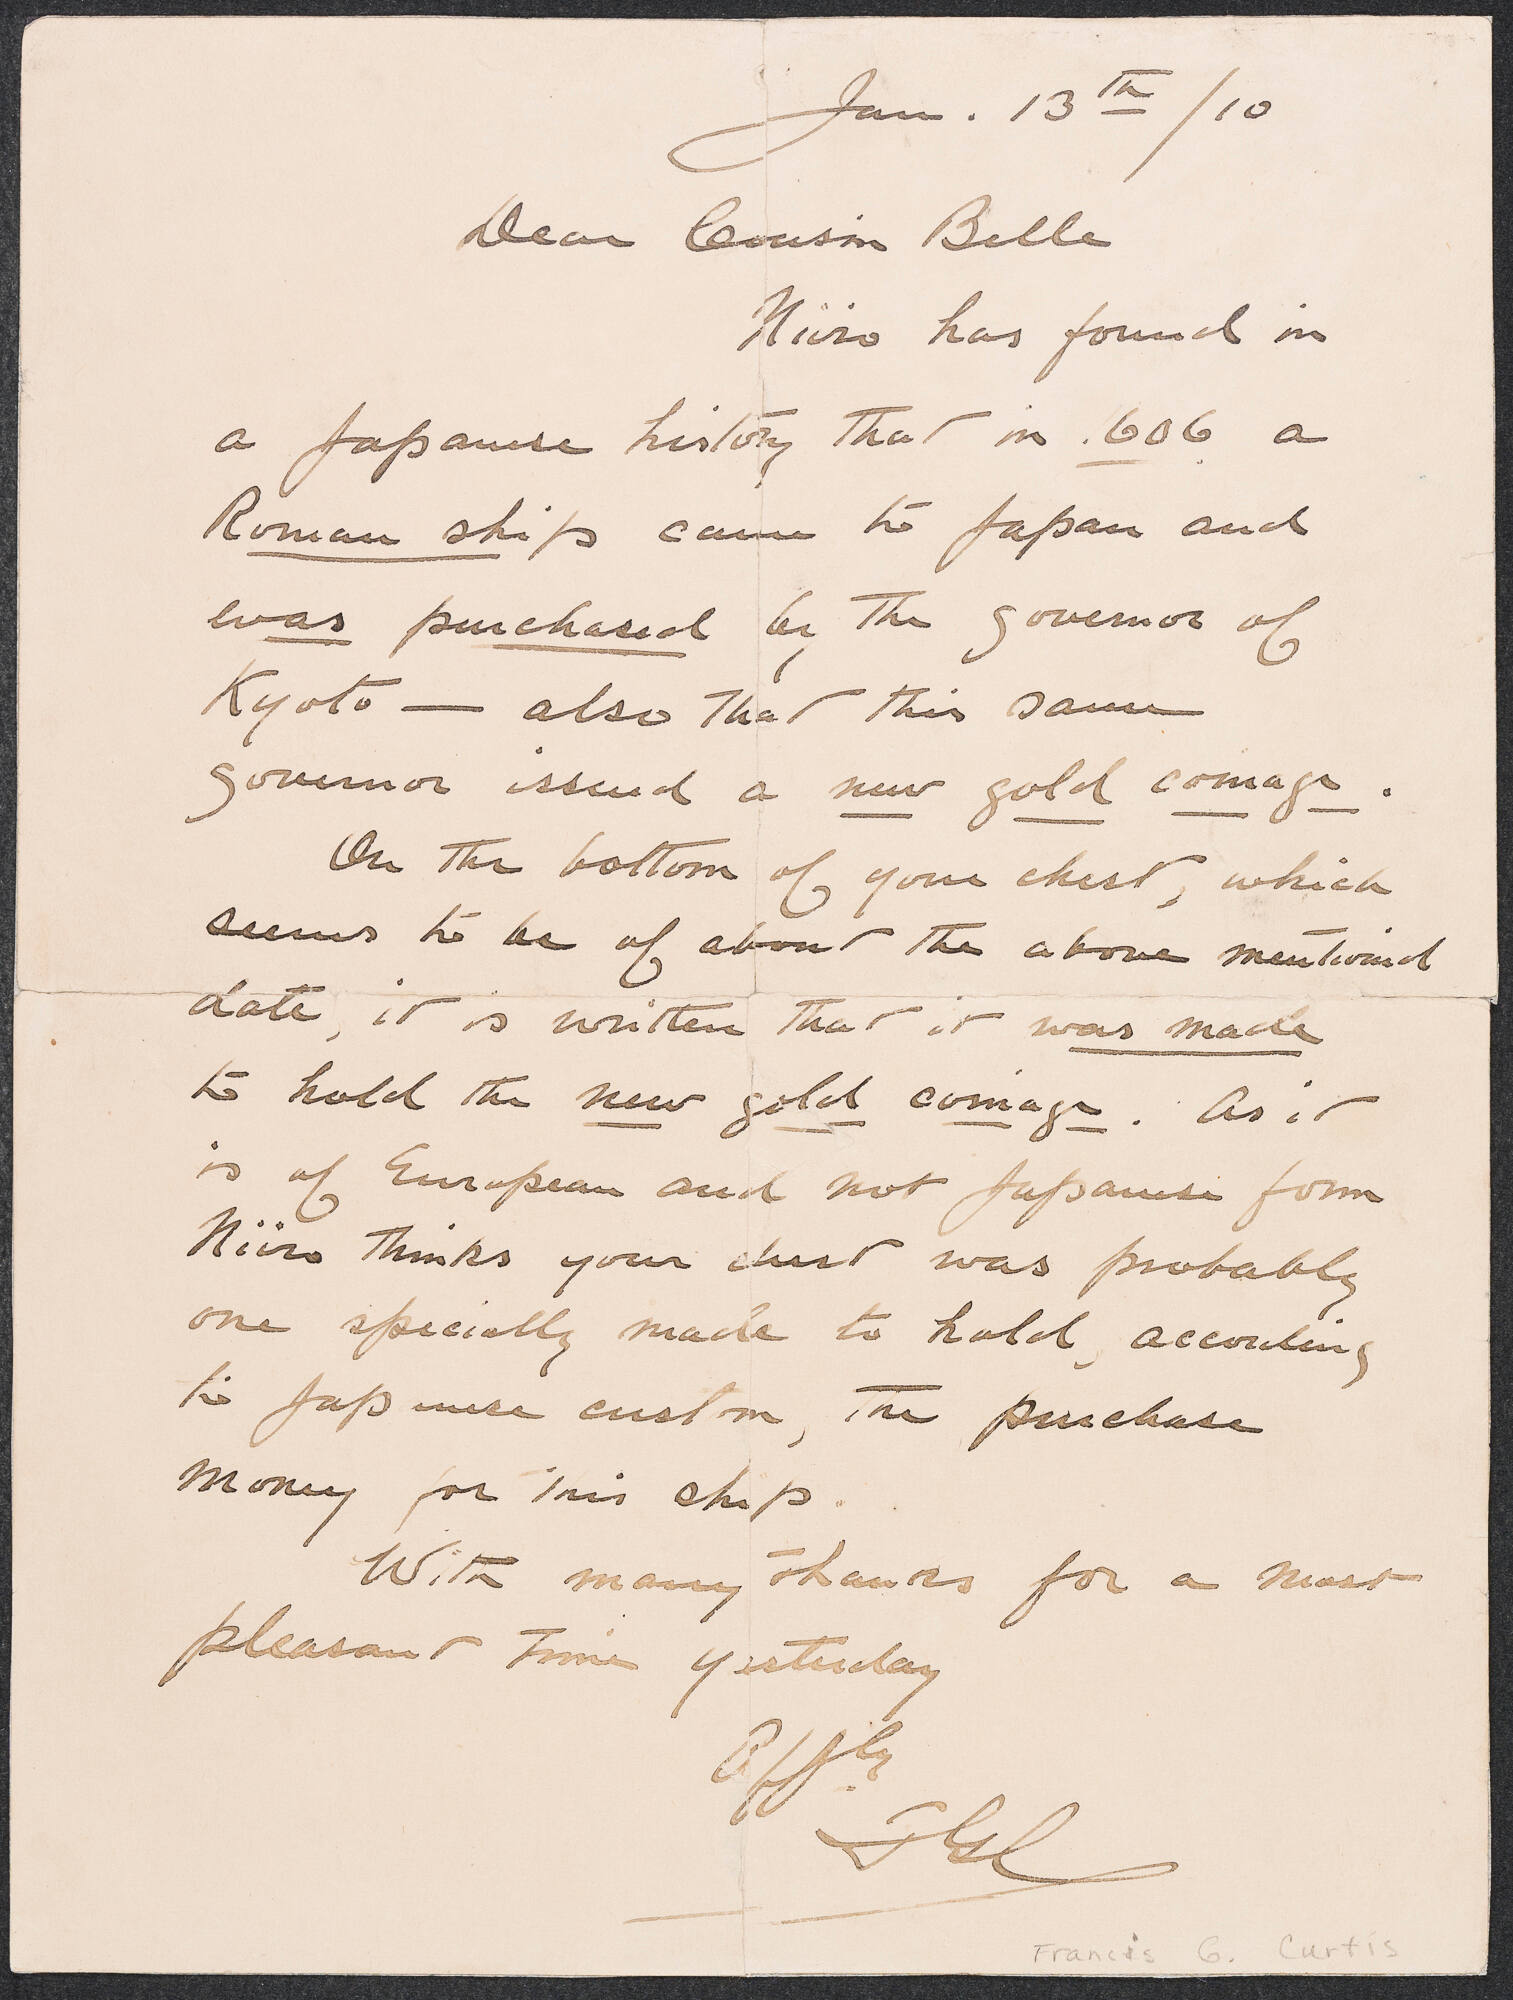 Jan. 13th/10
Dear Cousin Belle
Niiro has found in
a Japanese history that in 1606 a
Roman ship came to Japan and
was purchased by the governor of
Kyoto — also that this same
governor issued a new gold coinage.
On the bottom of your chest, which
seems to be of about the above mentioned
date, it is written that it was made
to hold the new gold coinage. As it
is of European and not Japanese form
Niiro thinks your chest was probably
one specially made to hold, according
to Japanese custom, the purchase
money for this ship.
With many thanks for a most
pleasant time yesterday
Affly.
FGC
Francis G. Curtis